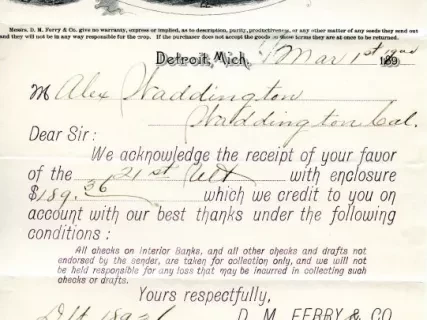 Messrs. D. M. Ferry & Co. give no warranty, express or implied, as to description, purity, productiveness, or any other matter of any seeds they send out
and they will not be in any way responsible for the crop. If the purchaser does not accept the goods on these terms they are at once to be returned.
Detroit, Mich. Mar 1st 189
M Alex Waddington
Waddington Cal.
Dear Sir:
We acknowledge the receipt of your favor
of the 21st Ult with enclosure
$189.36 which we credit to you on
account with our best thanks under the following
conditions:
All checks on Interior Banks, and all other checks and drafts not
endorsed by the sender, are taken for collection only, and we will not
be held responsible for any loss that may be incurred in collecting such
checks or drafts.
Yours respectfully,
D. M. FERRY & CO.